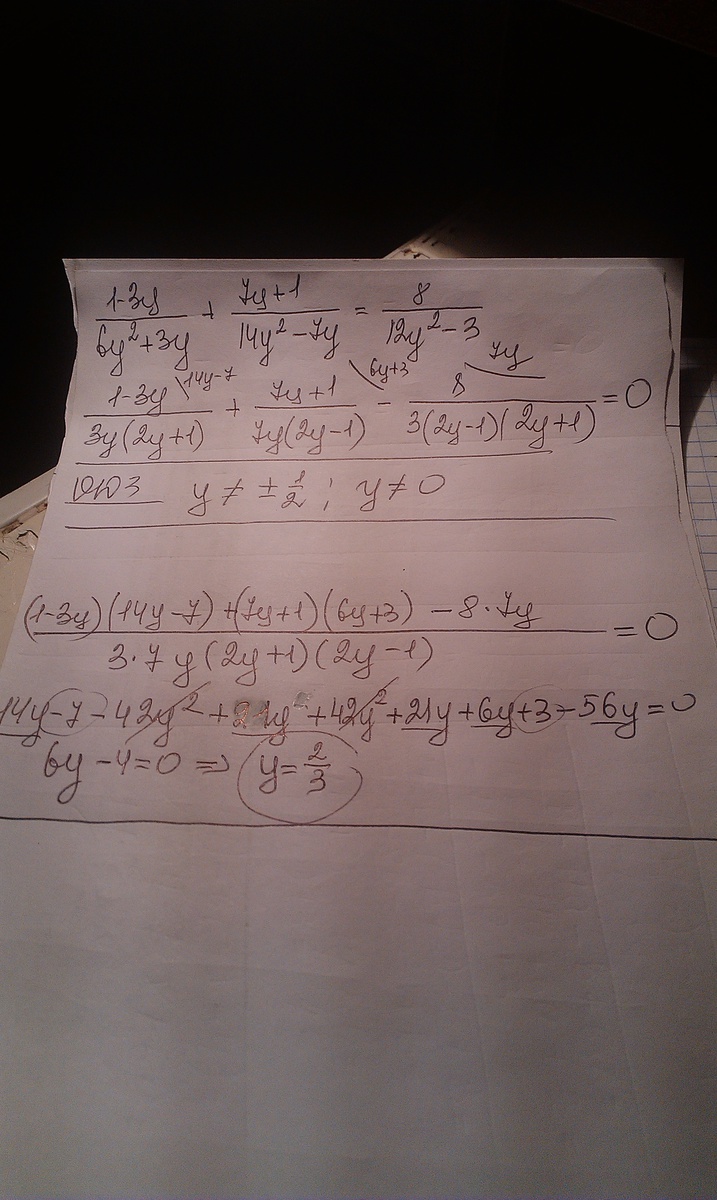 (1-3y)/(6y²+3y) + (7y+1)/(14y²-7y) = 8/(12y²-3)
(1-3y)/(3y(2y+1)) \14y-7 + (7y+1)/(7y(2y-1)) \6y+3 - 8/(3(2y-1)(2y+1)) \7y = 0
ОДЗ y ≠ ± 1/2 ; y ≠ 0
((1-3y)(14y-7)+(7y+1)(6y+3) - 8·7y)/(3·7y(2y+1)(2y-1)) = 0
14y-7-42y²+21y+42y²+21y+6y+3-56y=0
6y-4=0 => y=2/3